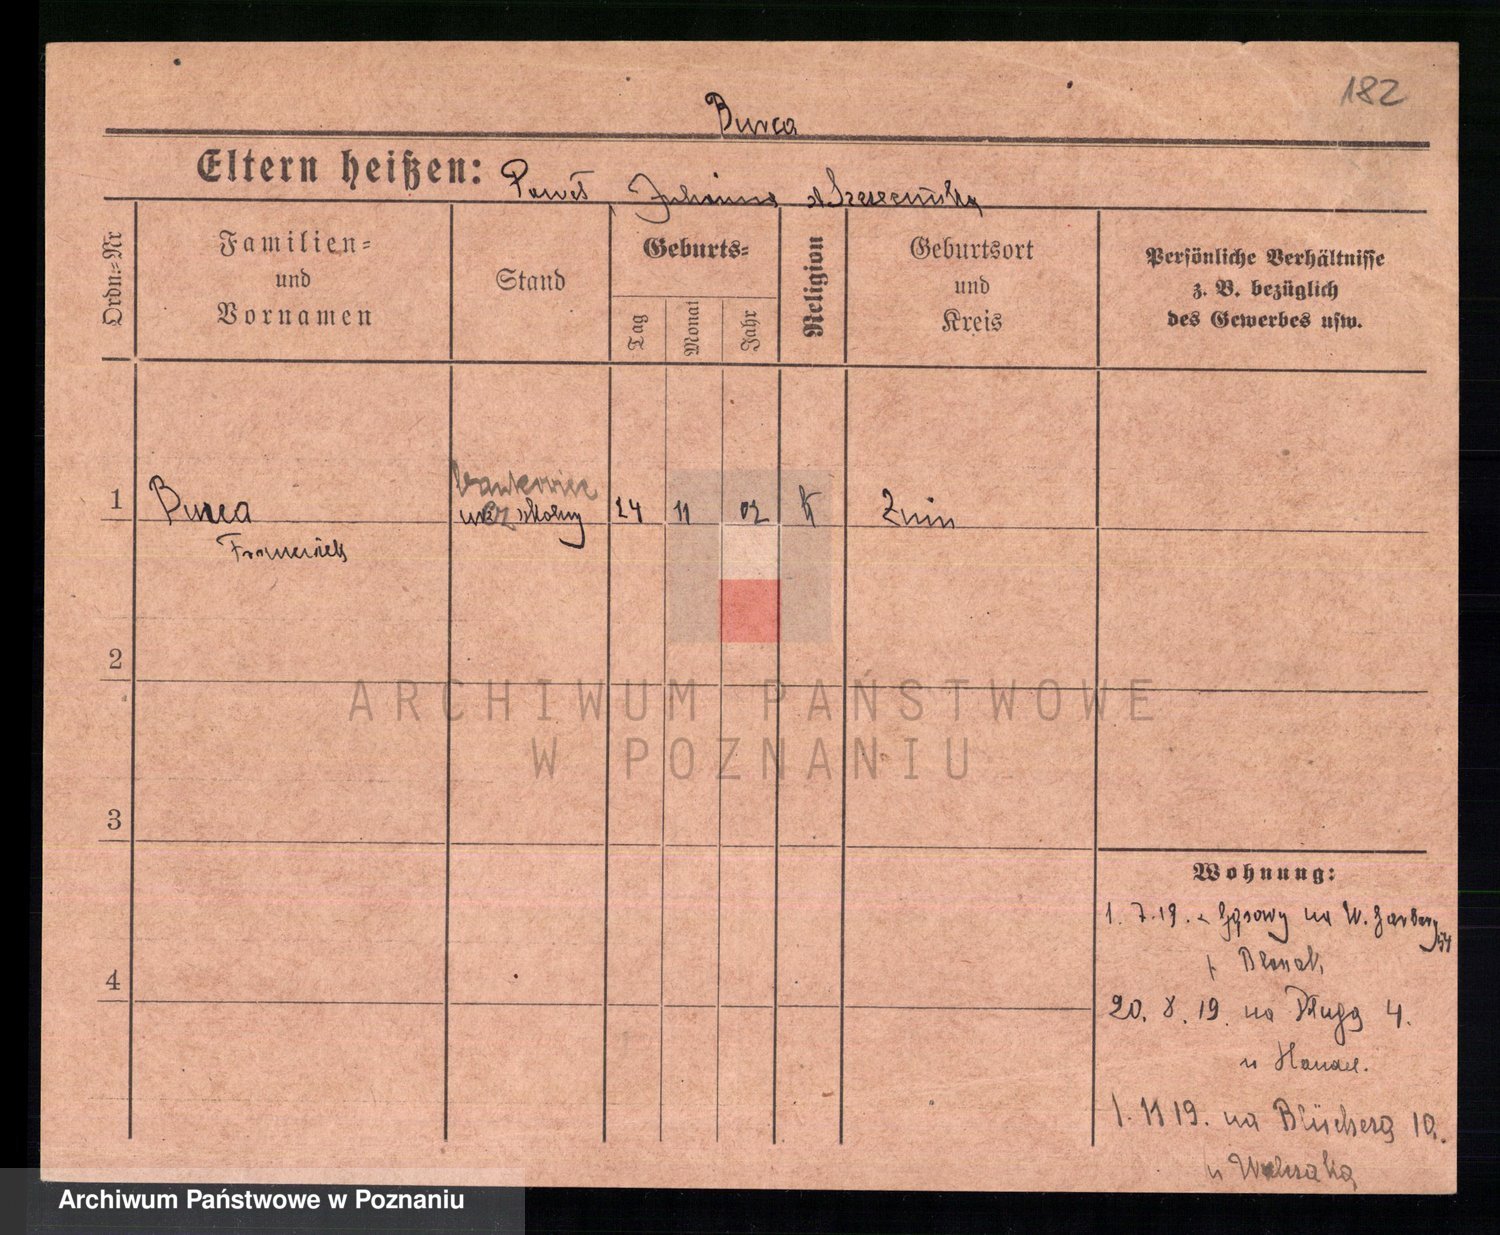 182
Burca
Eltern heißen: Paweł Julianna d Szczezeńska
Ordn=Nr
Familien=
und
Vornamen
Stand
Geburts=
Tag
Monat
Jahr
Religion
Geburtsort
und
Kreis
Persönliche Verhältnisse
z. B. bezüglich
des Gewerbes usw.
1
Burca
Franciszek
ucz szkolny
24 11 02 K Znin
2
3
4
ARCHIWUM PAŃSTWOWE
W POZNANIU
Wohnung:
1. 7. 19. Gąsowy na W. Garbary 54
20. 8. 19. na Długą 4.
u Handel.
1. 11 19. na Blüchera 10.
u
Archiwum Państwowe w Poznaniu